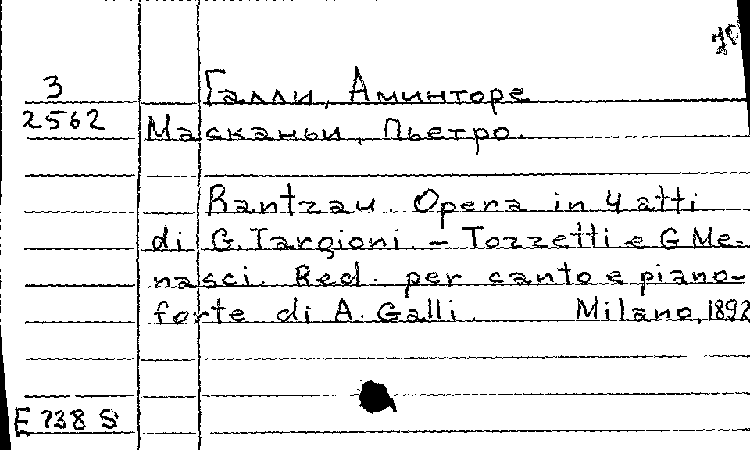 3
Галли, Аминторе
2562
Масканьи, Пьетро.
Rantzau. Opera in 4 atti
di G. Targioni. – Tozzetti e G Me-
nasci. Red. per canto e piano-
forte di A. Galli. Milano, 1892
E 738 S